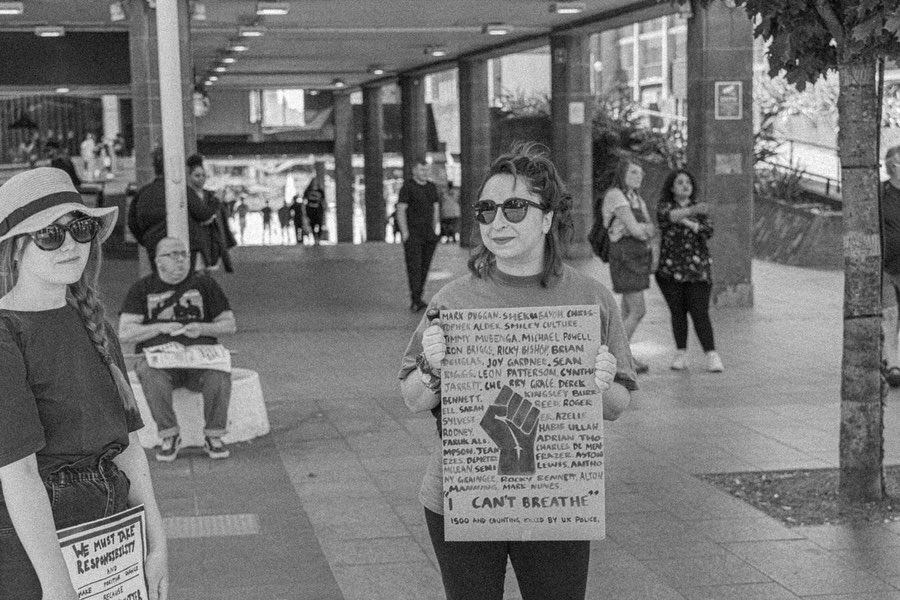 MARK DUGGAN. SHEKU BAYOH. CHRIS-
TOPHER ALDER. SMILEY CULTURE.
JIMMY MUBENGA. MICHAEL POWELL.
RON BRIGGS. RICKY BISHOP. BRIAN
DOUGLAS. JOY GARDNER. SEAN
RIGGS. LEON PATTERSON. CYNTHI
JARRETT. CHERRY GROCE. DEREK
BENNETT. KINGSLEY BURR
ELL. SARAH REED. ROGER
SYLVEST ER. AZELLE
RODNEY. HABIB ULLAH
FARUK ALI. ADRIAN THO
MPSON. JEAN CHARLES DE MEN
EZES. DEMETRE FRAZER. AYSTON
MULAN. SEMI LEWIS.
NY GRAINGER. ROCKY BENNETT. ALTON
MANNING. MARK NUNES.
"I CAN'T BREATHE"
1500 AND COUNTING KILLED BY UK POLICE.
WE MUST TAKE
RESPONSIBILITY
AND
MAKE POSITIVE CHANGE
BECAUSE